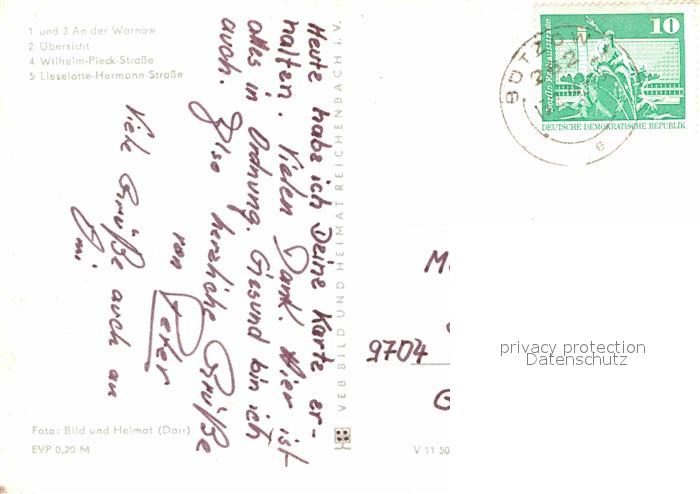 1 und 3 An der Warnow
2 Übersicht
4 Wilhelm-Pieck-Straße
5 Lieselotte-Hermann-Straße
Heute habe ich Deine Karte er-
halten. Vielen Dank. Hier ist
alles in Ordnung. Gesund bin ich
auch. Also herzliche Grüße
von Peter
Viele Grüße auch an
Omi
Foto: Bild und Heimat (Darr)
EVP 0,20 M
VEB BILD UND HEIMAT REICHENBACH i. V.
V 11 50
BÜTZOW
262
e
10
Berlin Rathausstraße
DEUTSCHE DEMOKRATISCHE REPUBLIK
M
9704
G
privacy protection
Datenschutz